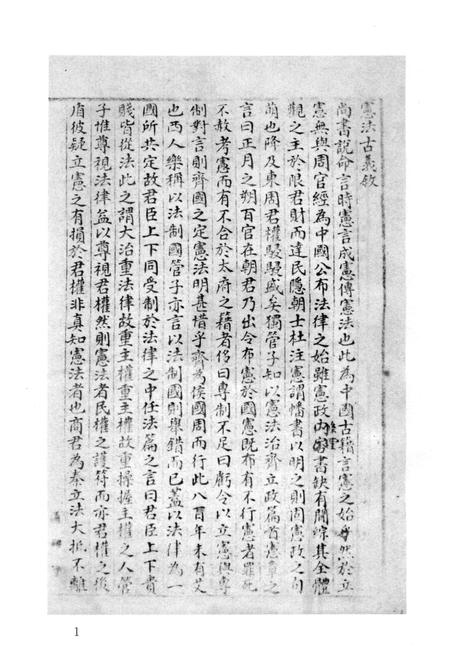 憲法古義敘
尚書說命言時憲言成憲傳憲法也此為中國古籍言憲之始然於立
憲無與周官經為中國公布法律之始雖憲政內容書缺有間綜其全體
觀之主於限君財而達民隱朝士杜注憲謂幡書以明之則周憲政之句
萌也降及東周君權駸駸盛矣獨管子知以憲法治齊立政篇首憲章之
言曰正月之朔百官在朝君乃出令布憲於國憲既布有不行憲者罪死
不赦考憲而有不合於太府之籍者侈曰專制不足曰虧令以立憲與專
制對言則齊國之定憲法明甚惜乎齊為侯國周而行此八百年未有艾
也西人樂稱以法制國管子亦言以法制國則舉錯而已蓋以法律為一
國所共定故君臣上下同受制於法律之中任法篇之言曰君臣上下貴
賤皆從法此之謂大治重法律故重主權重主權故重操握主權之人管
子惟尊視法律益以尊視君權然則憲法者民權之護符而亦君權之後
盾彼疑立憲之有損於君權非真知憲法者也商君為秦立法大抵不離
1